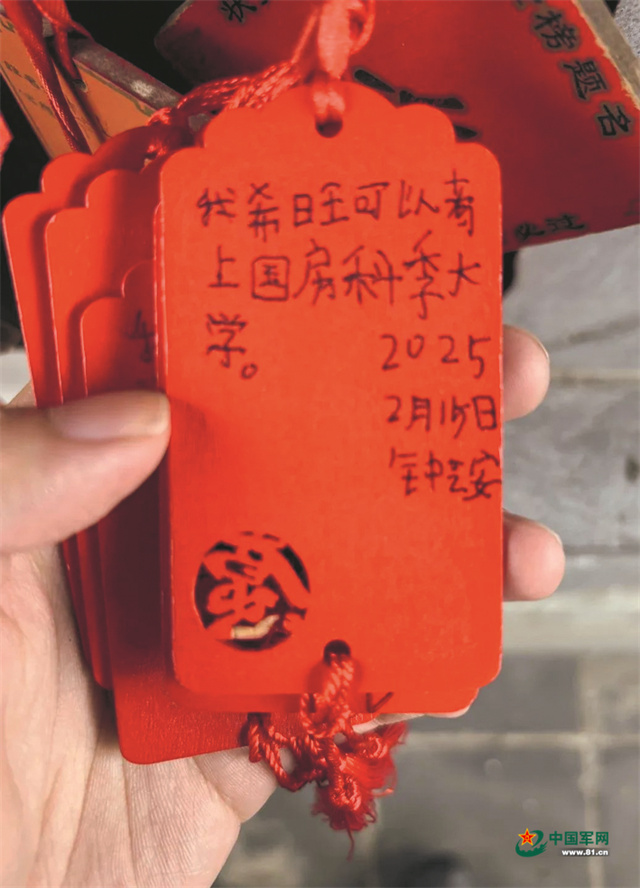 状
榜题名
我希旺可以考
上国房科季大
学。
2025
2月15日
钟芸安
中国军网
www.81.cn